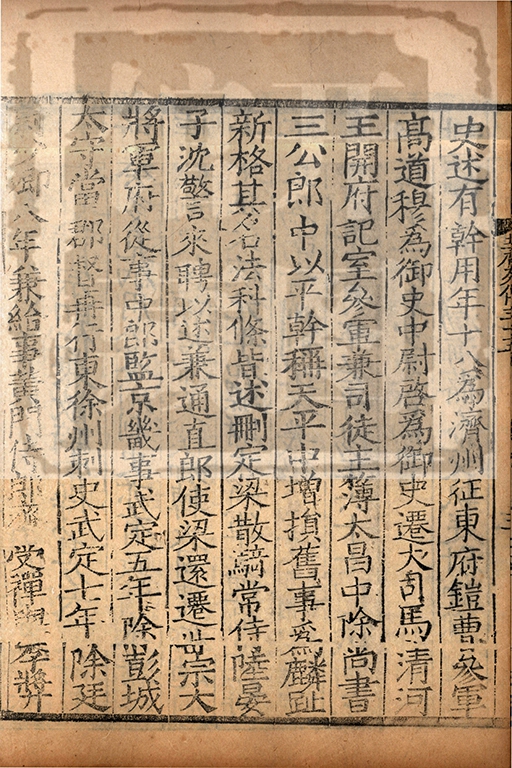 史述有幹用年十八為濟州征東府鎧曹參軍
髙道穆為御史中尉啓為御史遷大司馬清河
王開府記室參軍兼司徒主簿太昌中除尚書
三公郎中以平幹稱天平中增損舊事為麟趾
新格其名法科條皆述刪定梁散騎常侍陸晏
子沈警來聘以述兼通直郎使梁還遷世宗大
將軍府從事中郎監京畿事武定五年除彭城
太守當郡督冊行東徐州刺史武定七年除廷
尉少卿八年兼給事黃門侍郎齊受禪